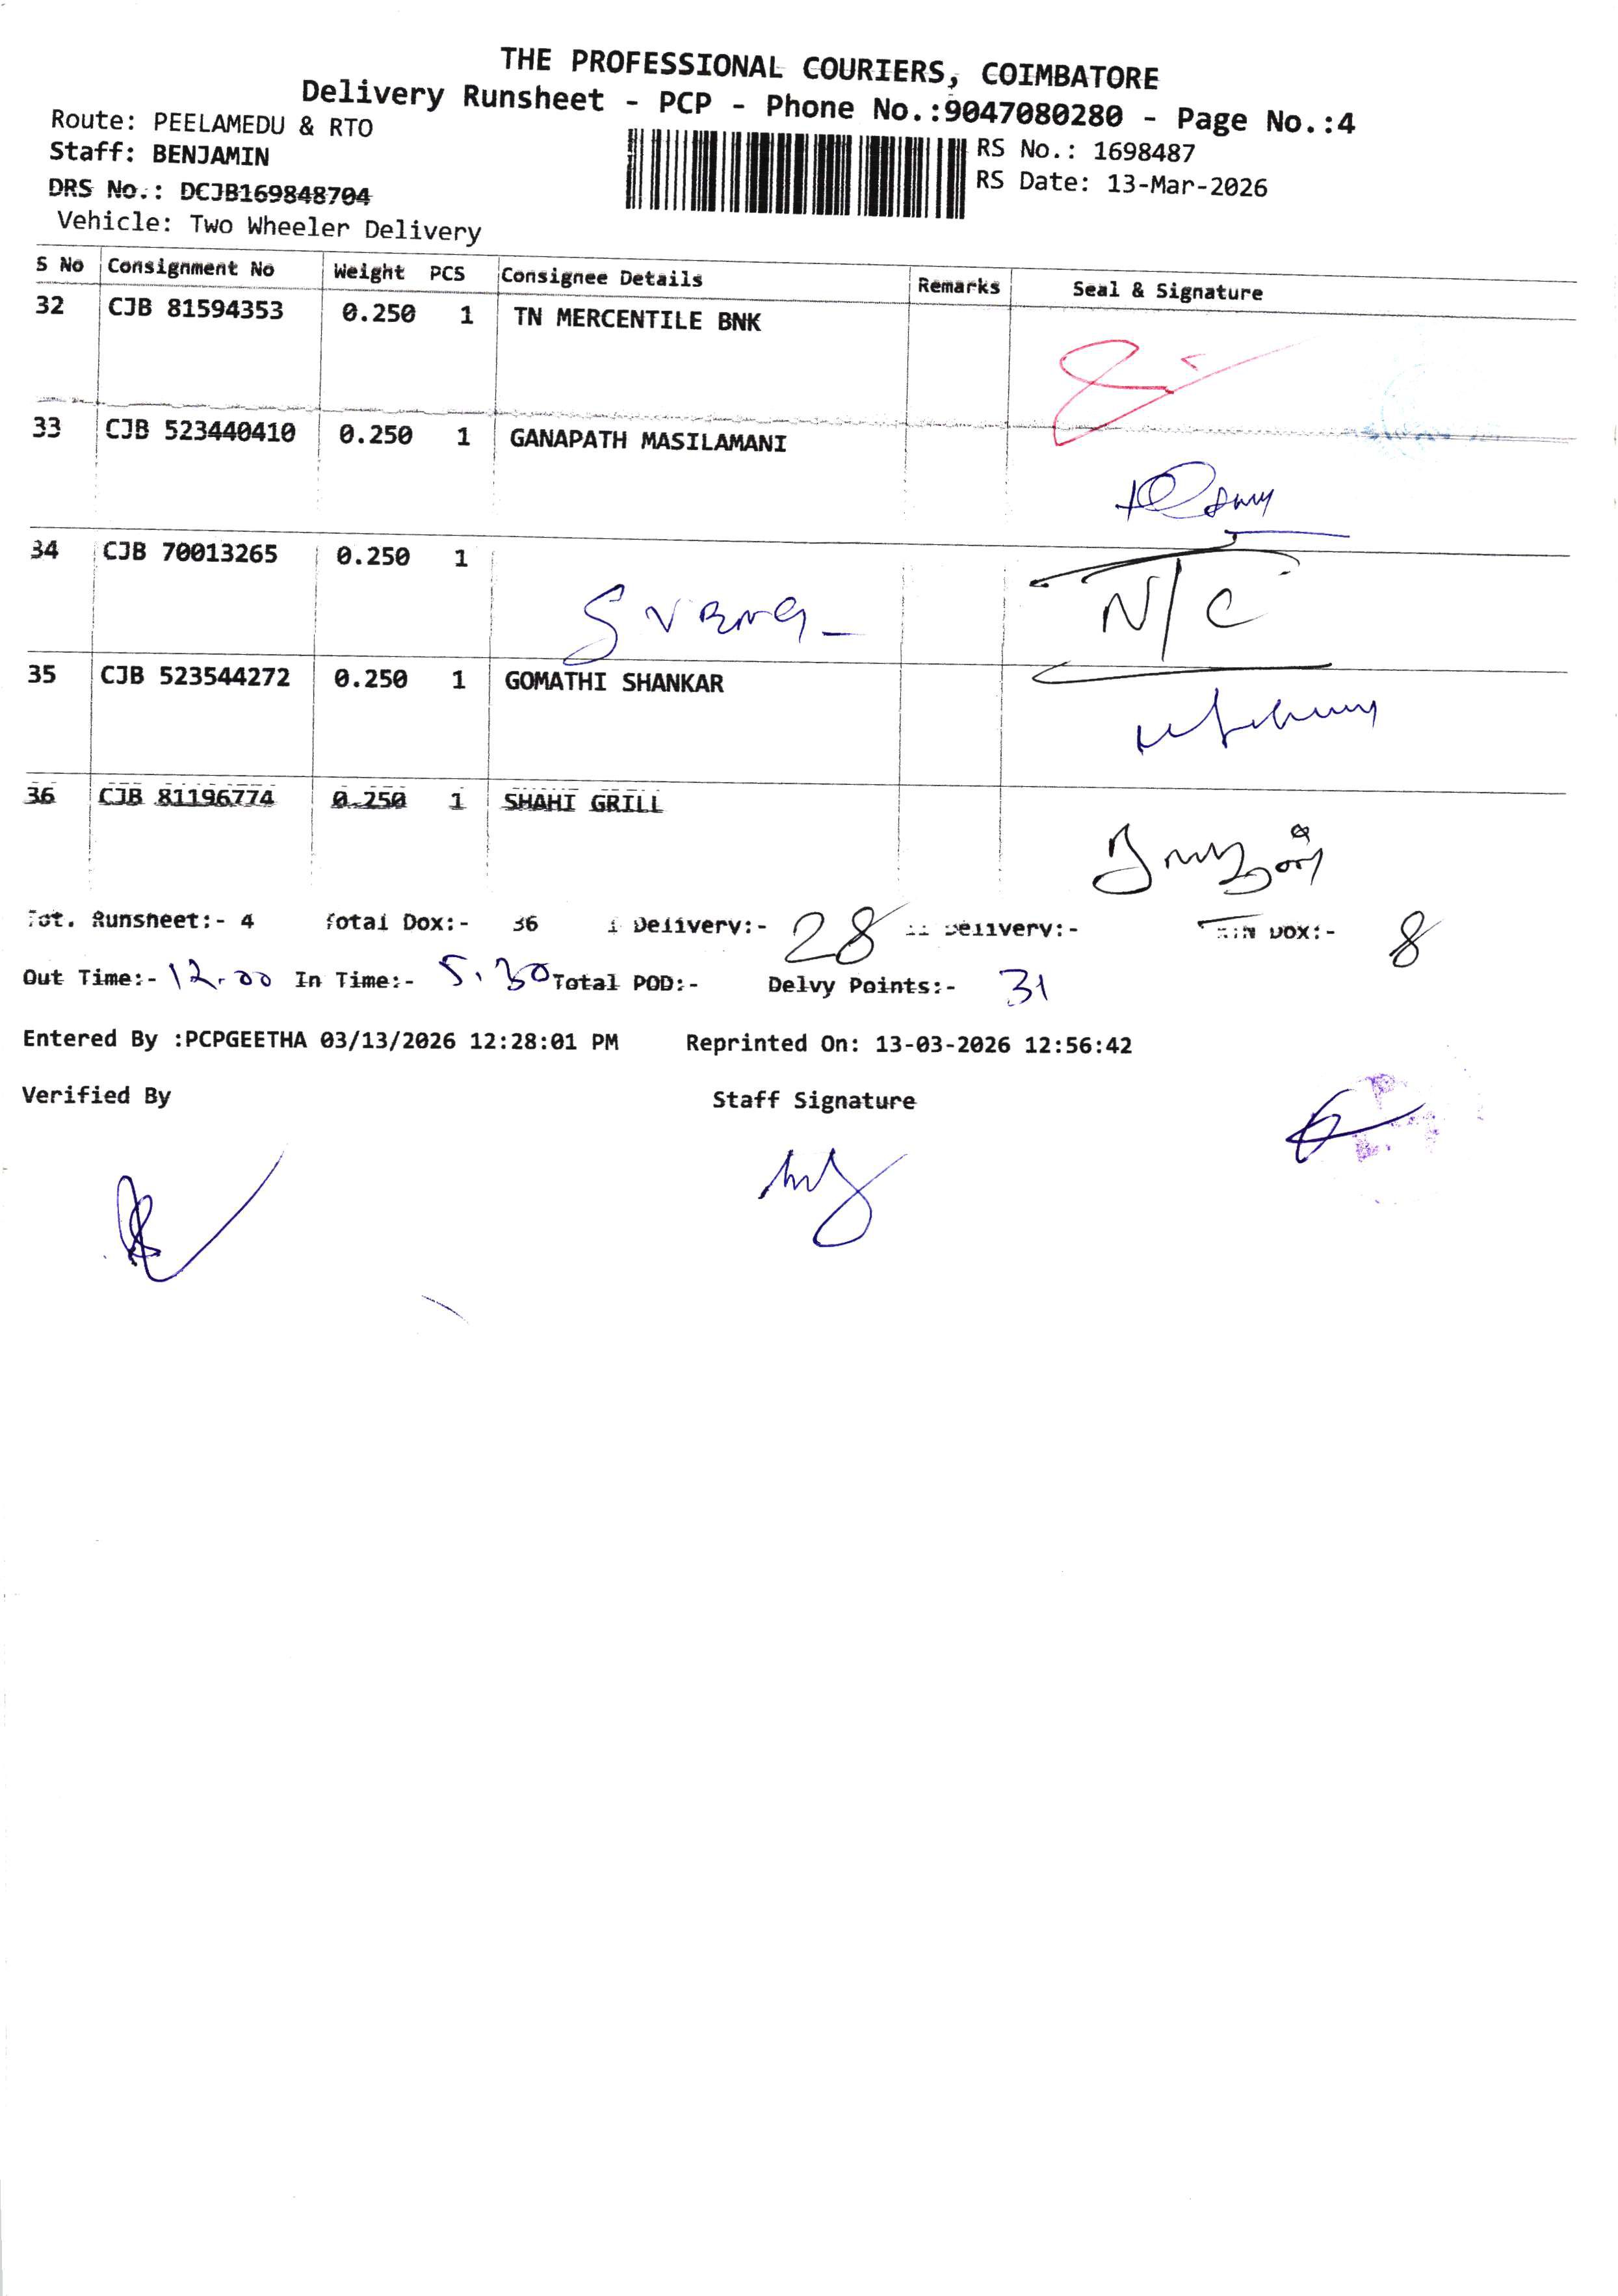 THE PROFESSIONAL COURIERS, COIMBATORE
Delivery Runsheet - PCP - Phone No.:9047080280 - Page No.:4
Route: PEELAMEDU & RTO
Staff: BENJAMIN
RS No.: 1698487
DRS No.: DCJB169848704
RS Date: 13-Mar-2026
Vehicle: Two Wheeler Delivery
S No Consignment No Weight PCS Consignee Details Remarks Seal & Signature
32 CJB 81594353 0.250 1 TN MERCENTILE BNK
33 CJB 523440410 0.250 1 GANAPATH MASILAMANI
34 CJB 70013265 0.250 1
N/C
35 CJB 523544272 0.250 1 GOMATHI SHANKAR
36 CJB 81196774 0.250 1 SHAHI GRILL
Tot. Runsheet:- 4 Total Dox:- 36 I Delivery:- 28 II Delivery:- DOX:- 8
Out Time:- 12.00 In Time:- 5.30 Total POD:- Delvy Points:- 31
Entered By :PCPGEETHA 03/13/2026 12:28:01 PM Reprinted On: 13-03-2026 12:56:42
Verified By Staff Signature